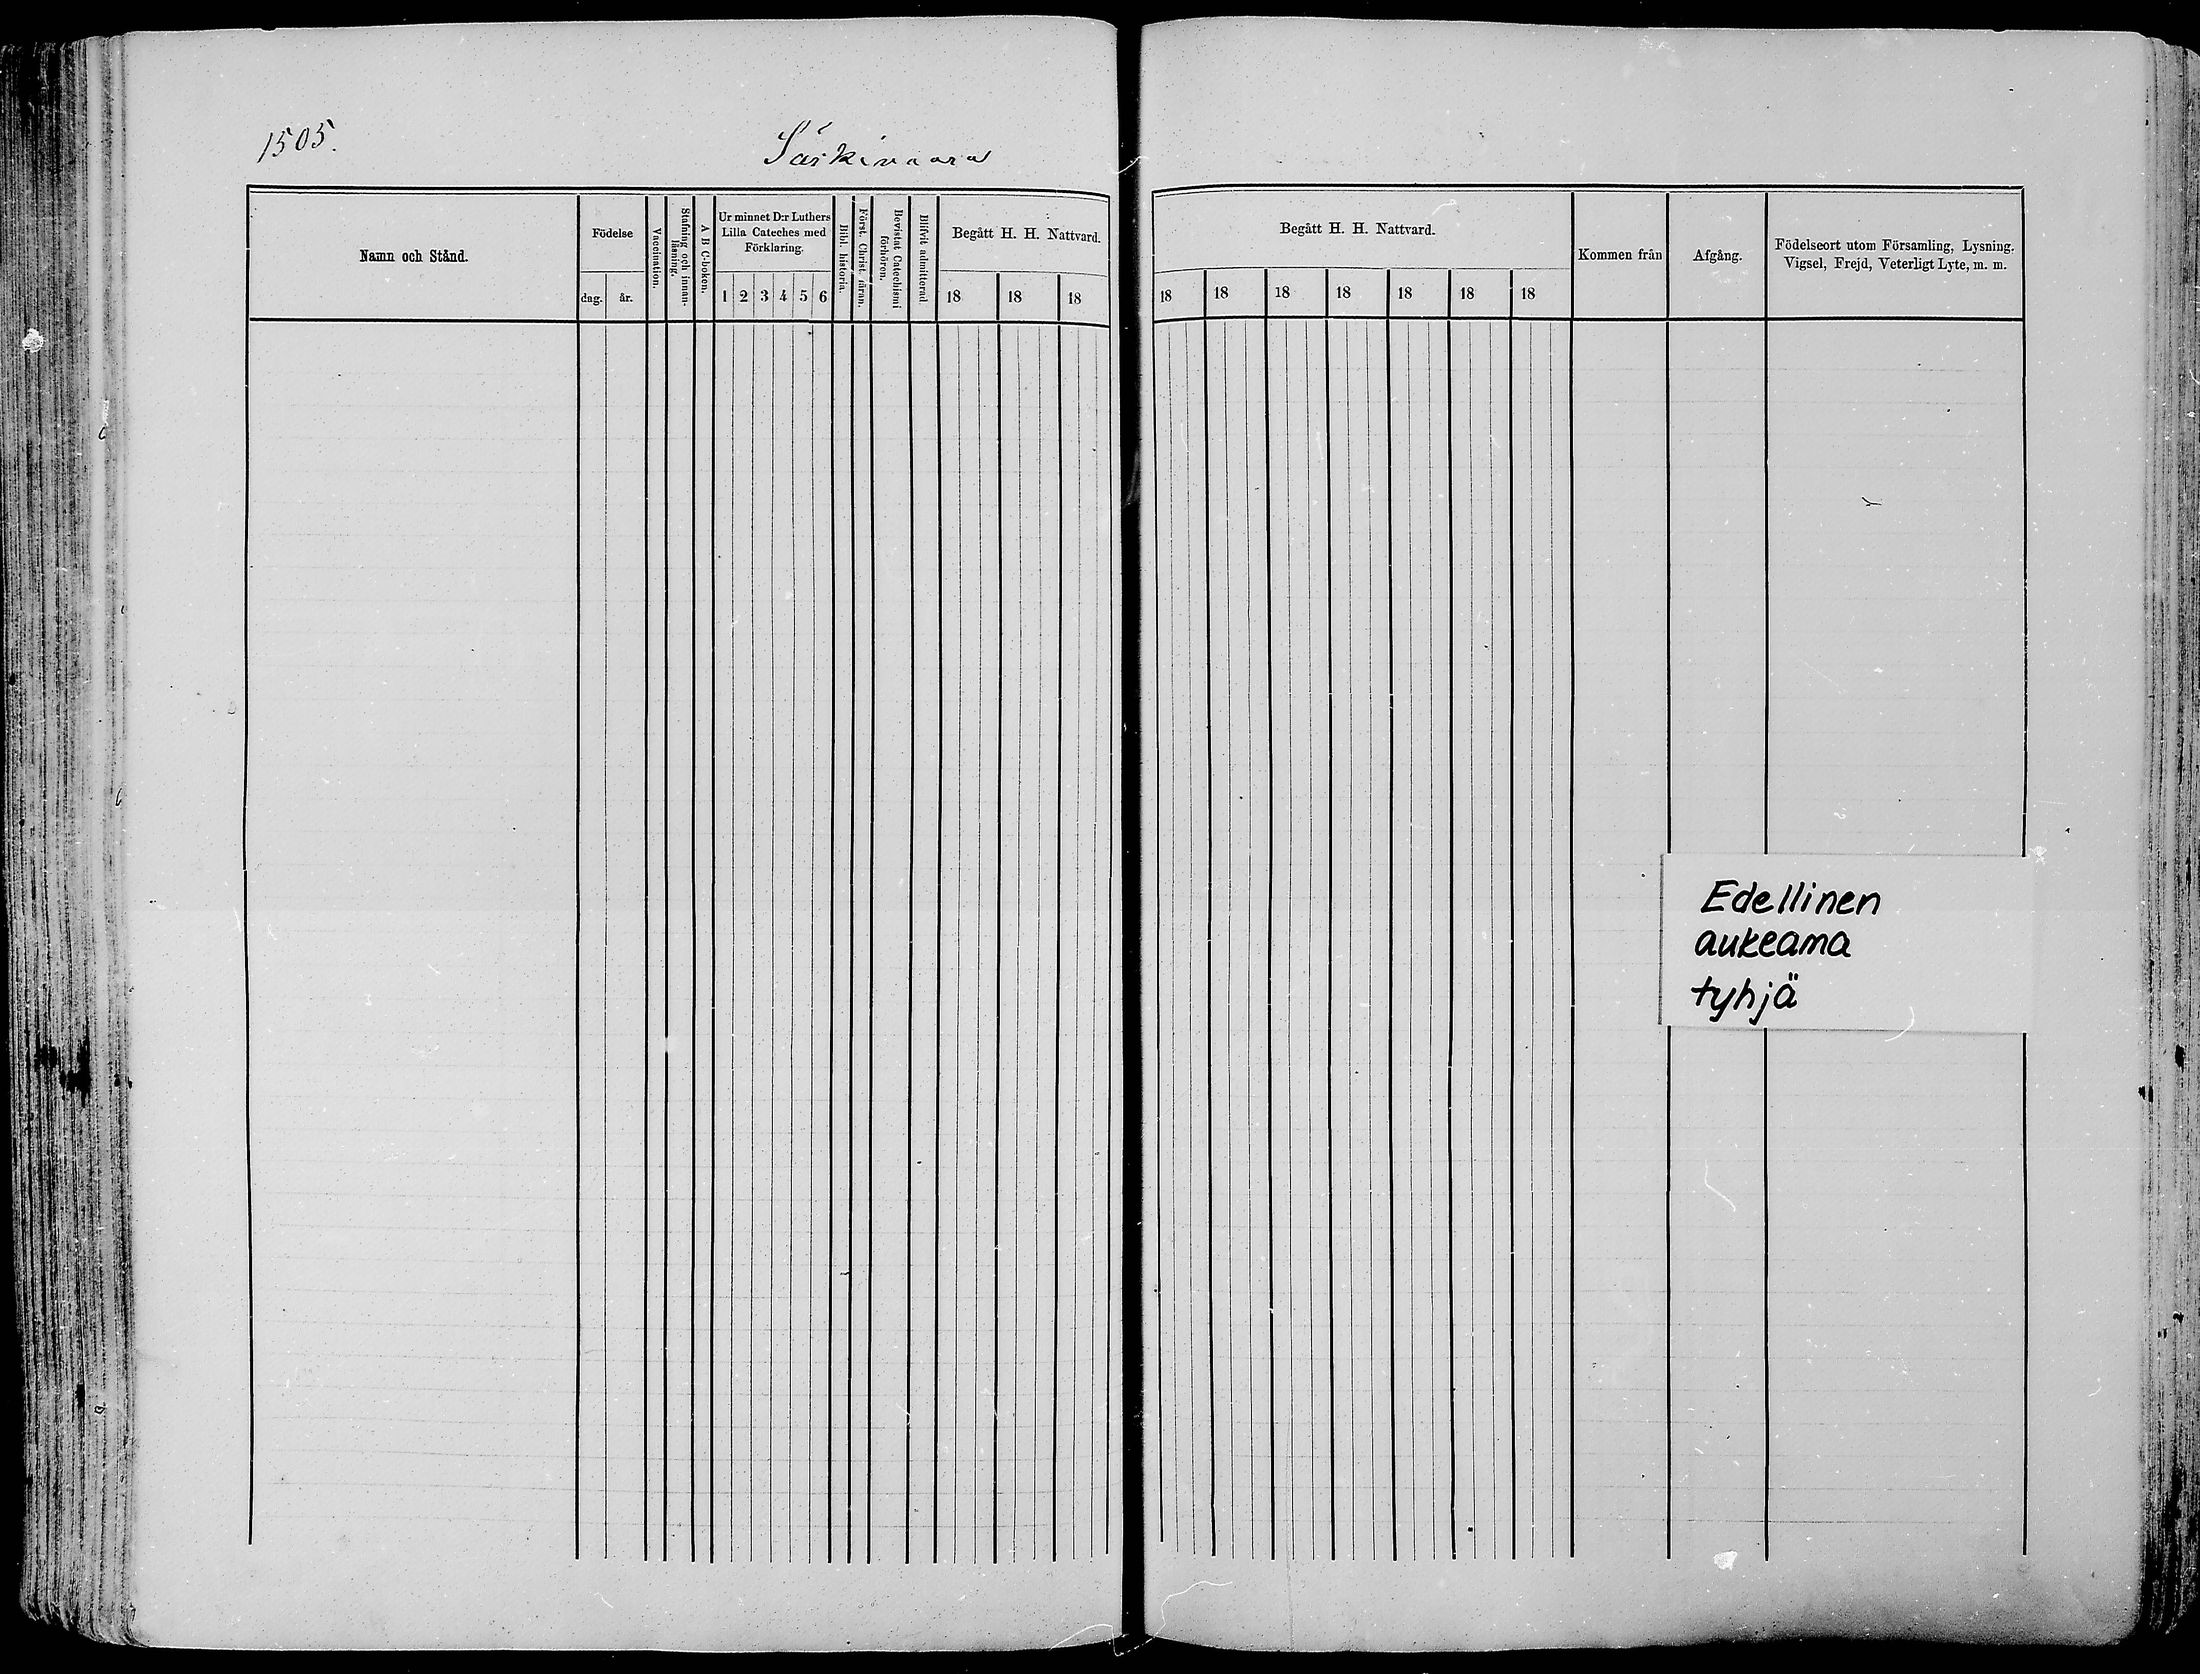 1505.
Särkivaara
Namn och Stånd.
Födelse
dag.
år.
Vaccination.
Stafning och innan-
läsning.
A B C-boken.
Ur minnet D:r Luthers
Lilla Cateches med
Förklaring.
1 2 3 4 5 6
Bibl. historia.
Först. Christ. läran.
Bevistat Catechismi
förhören.
Blifvit admitterad
Begått H. H. Nattvard.
18 18 18
Begått H. H. Nattvard.
18 18 18 18 18 18 18
Kommen från
Afgång.
Födelseort utom Församling, Lysning,
Vigsel, Frejd, Veterligt Lyte, m. m.
Edellinen
aukeama
tyhjä